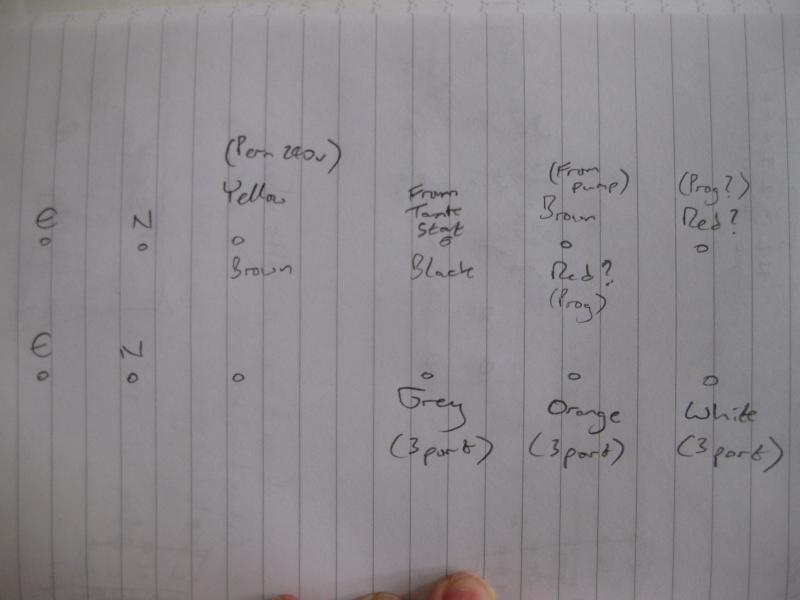 (Perm 240v)
(From pump)
(Prog?)
E N Yellow From Tank Stat Brown Red?
Brown Black Red?
(Prog)
E N
Grey Orange White
(3 port) (3 port) (3 port)